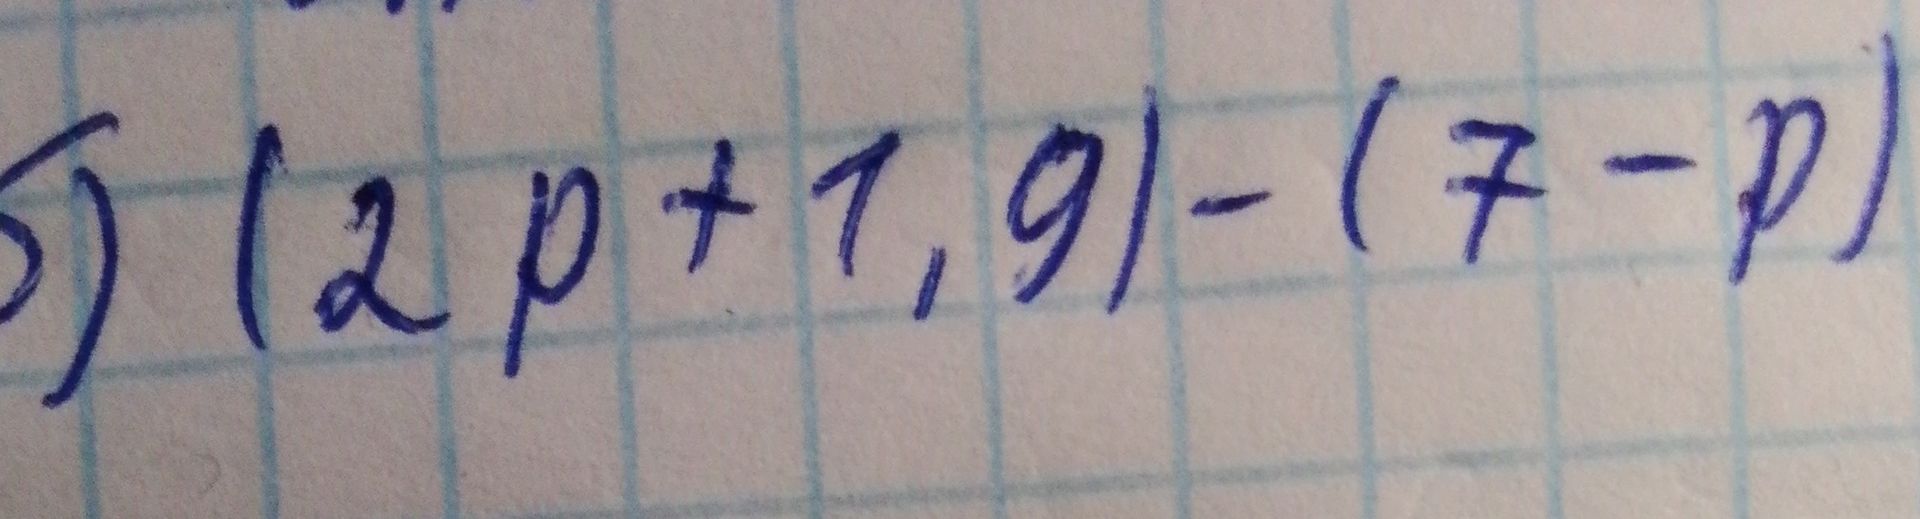 б) (2p+1,9)-(7-p)